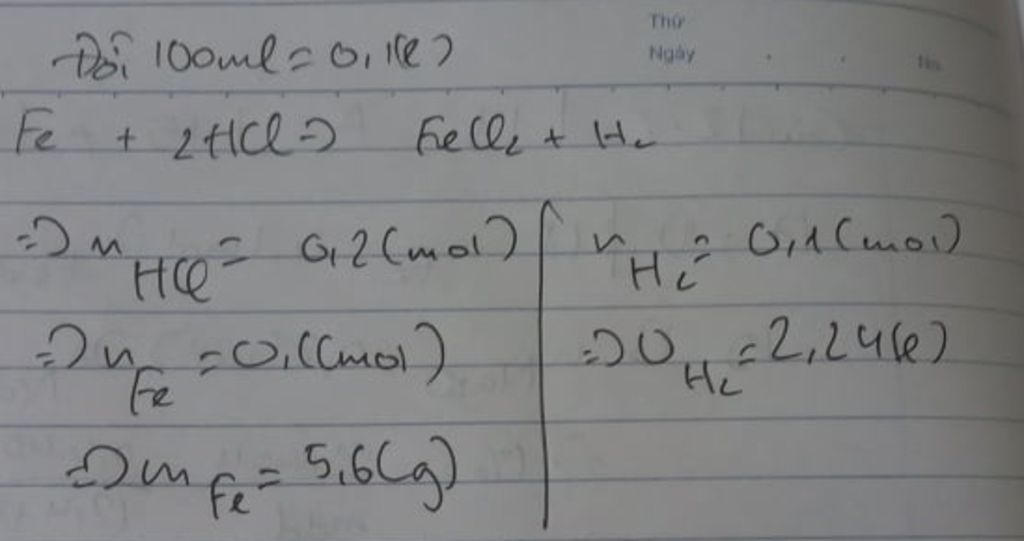 Thứ
Ngày
No
Đổi 100ml = 0,1(l)
Fe + 2HCl => FeCl₂ + H₂
=> n HCl = 0,2 (mol)
=> n Fe = 0,1 (mol)
=> m Fe = 5,6 (g)
n H₂ = 0,1 (mol)
=> V H₂ = 2,24 (l)